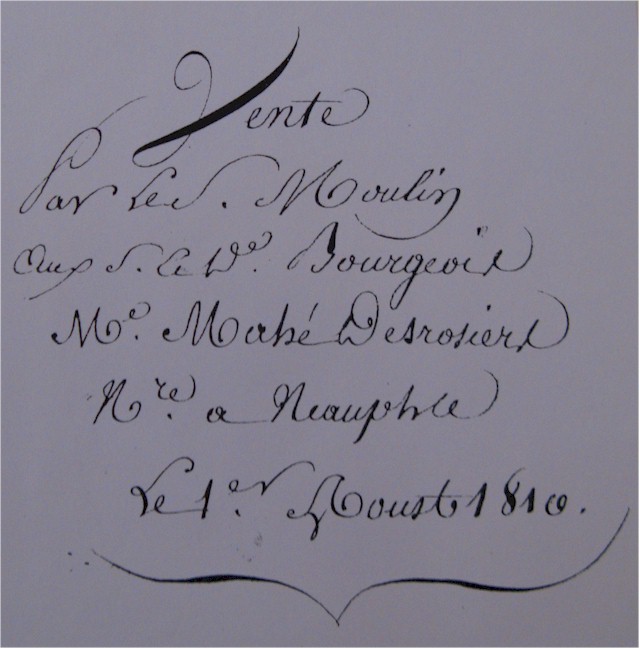 Vente
Par Le S. Moulin
Aux S. Le De. Bourgeois
Me. Mahé Desrosiers
Nre. a Neauphle
Le 1er. Aoust 1810.